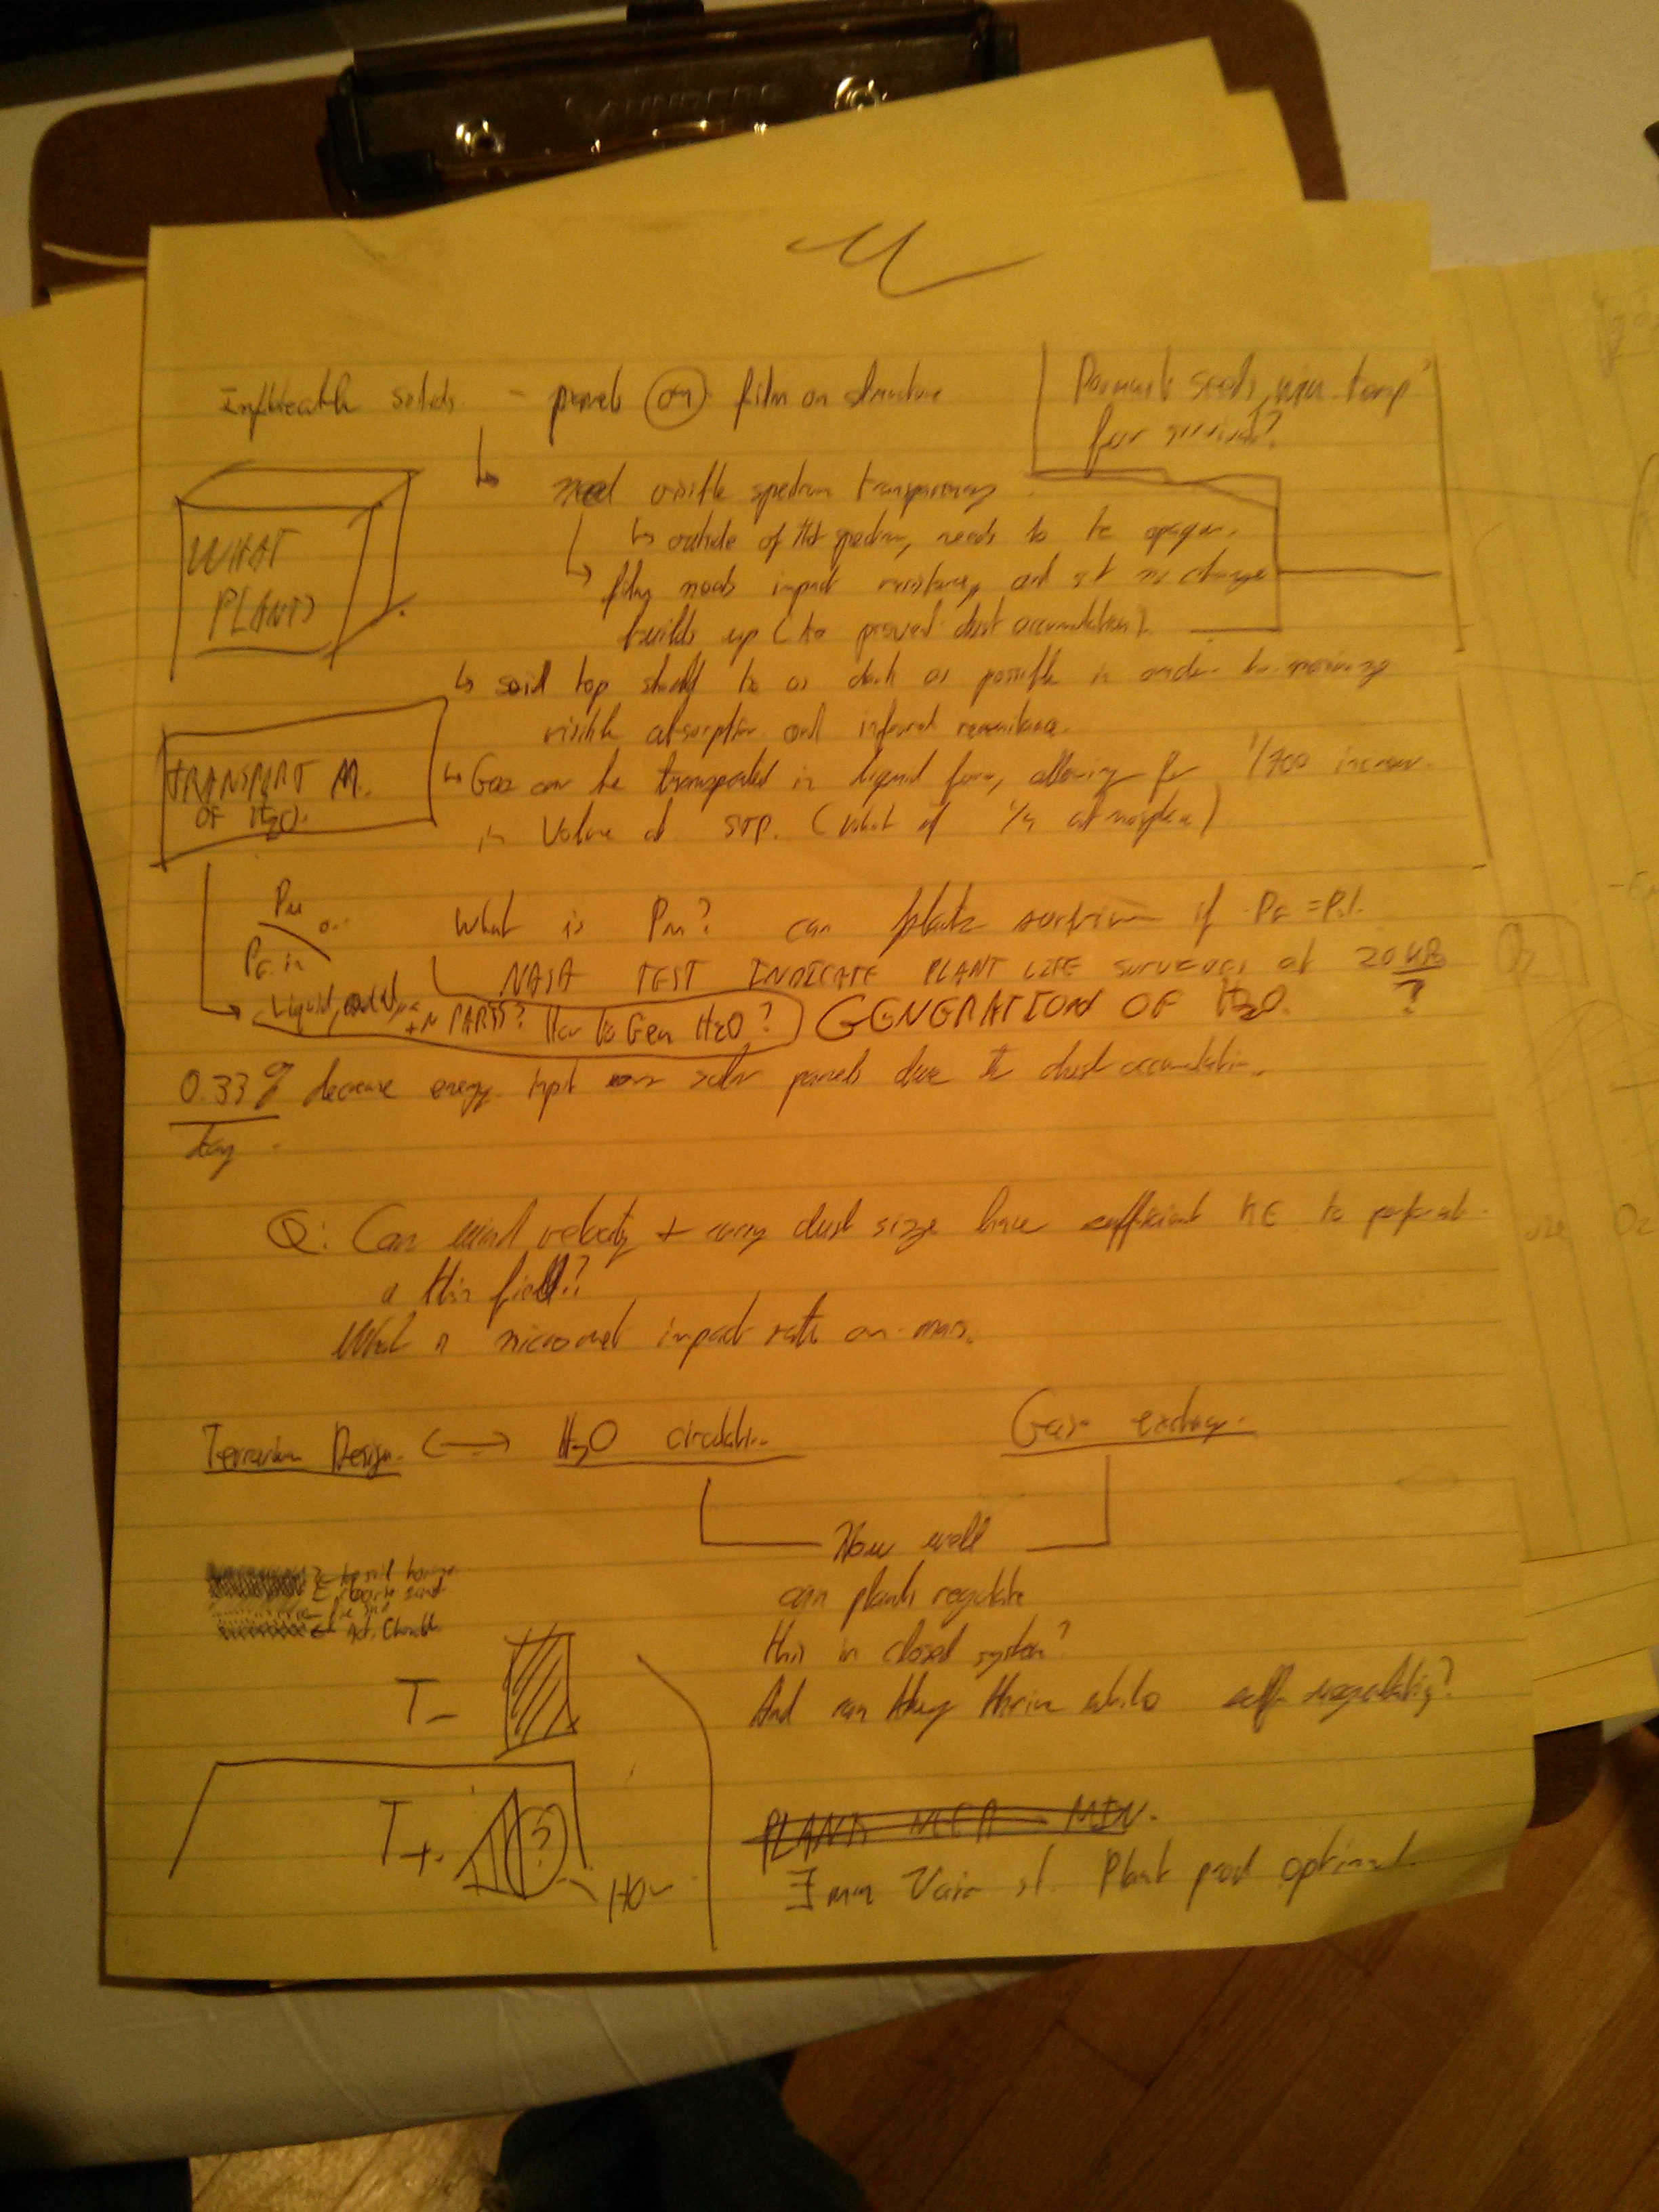 SAUNDERS
Inflteatable solids - panels (on) film on structure
Dormant seeds, min. temp
for survival?
need visible spectrum transparency
↳ outside of that spectrum, needs to be opaque.
film needs impact resistance, and st no charge
builds up (to prevent dust accumulation).
WHAT
PLANTS
↳ soil top should be as dark as possible in order to maximize
visible absorption and infrared
TRANSPORT M.
OF H2O.
↳ Gas can be transported in liquid form, allowing for 1/700 increase
in Volume at STP. (What if 1/4 atmosphere)
PM
PE in
What is PM? can plants survive if PE = PM.
NASA TEST INDICATE PLANT LIFE survives at 20 kPa
?
Liquid, PARTS? How to Gen H2O? GENERATION OF H2O.
0.33% decrease energy input solar panels due to dust accumulation.
day
Q: Can wind velocity + carry dust size have sufficient KE to perforate
a thin field?
What is micromet impact rate on mars.
Terrarium Design ↔ H2O circulation
Gas exchange
How well
can plants regulate
this in closed system?
And can they thrive while self regulating?
top soil
sand
Act. Charcoal
T-
T+
?
PLANTS MIN.
∃ min st. Plant prod optimal.